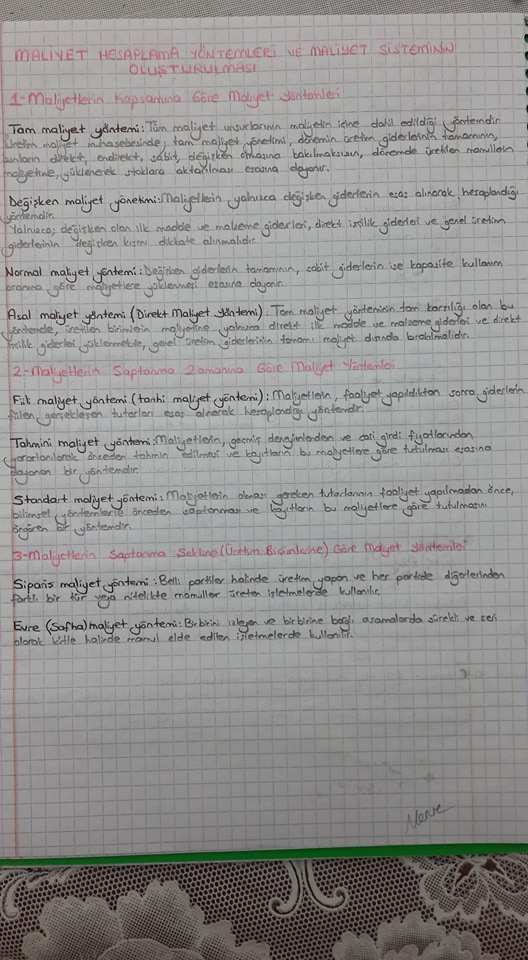 MALİYET HESAPLAMA YÖNTEMLERİ VE MALİYET SİSTEMİNİN
OLUŞTURULMASI
1-Maliyetlerin Kapsamına Göre Maliyet Yöntemleri
Tam maliyet yöntemi: Tüm maliyet unsurlarının maliyetin içine dahil edildiği yöntemdir.
Üretim maliyet muhasebesinde, tam maliyet yönetimi, dönemin üretim giderlerinin tamamının,
bunların direkt, endirekt, sabit, değişken olmasına bakılmaksızın, dönemde üretilen mamullerin
maliyetine, yüklenerek stoklara aktarılması esasına dayanır.
Değişken maliyet yönetimi: Maliyetlerin yalnızca değişken giderlerin esas alınarak, hesaplandığı
yöntemdir.
Yalnızca; değişken olan ilk madde ve malzeme giderleri, direkt işçilik giderleri ve genel üretim
giderlerinin değişken kısmı dikkate alınmalıdır.
Normal maliyet yöntemi: Değişken giderlerin tamamının, sabit giderlerin ise kapasite kullanım
oranına göre maliyetlere yüklenmesi esasına dayanır.
Asal maliyet yöntemi (Direkt Maliyet Yöntemi): Tam maliyet yönteminin tam karşılığı olan bu
yöntemde, üretilen birimlerin maliyetine yalnızca direkt ilk madde ve malzeme giderleri ve direkt
işçilik giderleri yüklenmekte, genel üretim giderlerinin tamamı maliyet dışında bırakılmalıdır.
2-Maliyetlerin Saptanma Zamanına Göre Maliyet Yöntemleri
Fiili maliyet yöntemi (tarihi maliyet yöntemi): Maliyetlerin, faaliyet yapıldıktan sonra giderlerin
fiilen gerçekleşen tutarları esas alınarak hesaplandığı yöntemdir.
Tahmini maliyet yöntemi: Maliyetlerin, geçmiş deneyimlerden ve cari girdi fiyatlarından
yararlanılarak önceden tahmin edilmesi ve kayıtların bu maliyetlere göre tutulması esasına
dayanan bir yöntemdir.
Standart maliyet yöntemi: Maliyetlerin olması gereken tutarlarının faaliyet yapılmadan önce,
bilimsel yöntemlerle önceden saptanması ve kayıtların bu maliyetlere göre tutulmasını
öngören bir yöntemdir.
3-Maliyetlerin Saptanma Şekline (Üretim Biçimlerine) Göre Maliyet Yöntemleri
Sipariş maliyet yöntemi: Belli partiler halinde üretim yapan ve her partide diğerlerinden
farklı bir tür veya nitelikte mamuller üreten işletmelerde kullanılır.
Evre (Safha) maliyet yöntemi: Birbirini izleyen ve birbirine bağlı aşamalarda sürekli ve seri
olarak kitle halinde mamul elde edilen işletmelerde kullanılır.
Merve